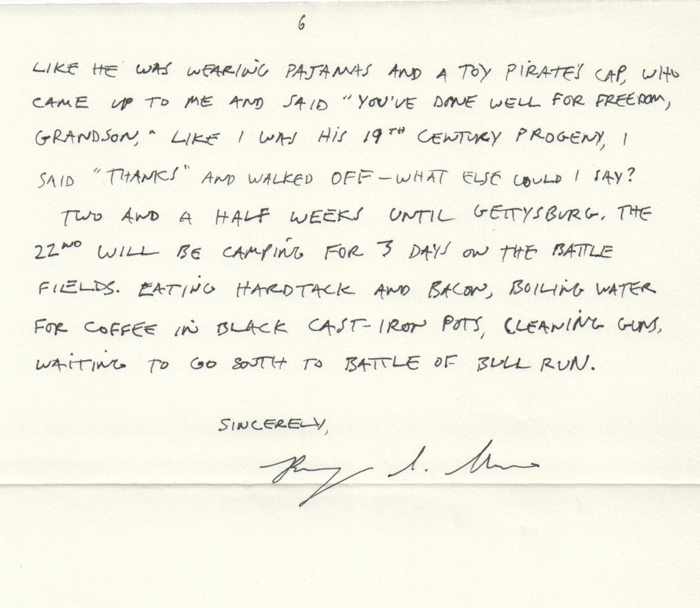 6
LIKE HE WAS WEARING PAJAMAS AND A TOY PIRATE'S CAP, WHO
CAME UP TO ME AND SAID "YOU'VE DONE WELL FOR FREEDOM,
GRANDSON," LIKE I WAS HIS 19TH CENTURY PROGENY, I
SAID "THANKS" AND WALKED OFF - WHAT ELSE COULD I SAY?
TWO AND A HALF WEEKS UNTIL GETTYSBURG. THE
22ND WILL BE CAMPING FOR 3 DAYS ON THE BATTLE
FIELDS. EATING HARDTACK AND BACON, BOILING WATER
FOR COFFEE IN BLACK CAST-IRON POTS, CLEANING GUNS,
WAITING TO GO SOUTH TO BATTLE OF BULL RUN.
SINCERELY,